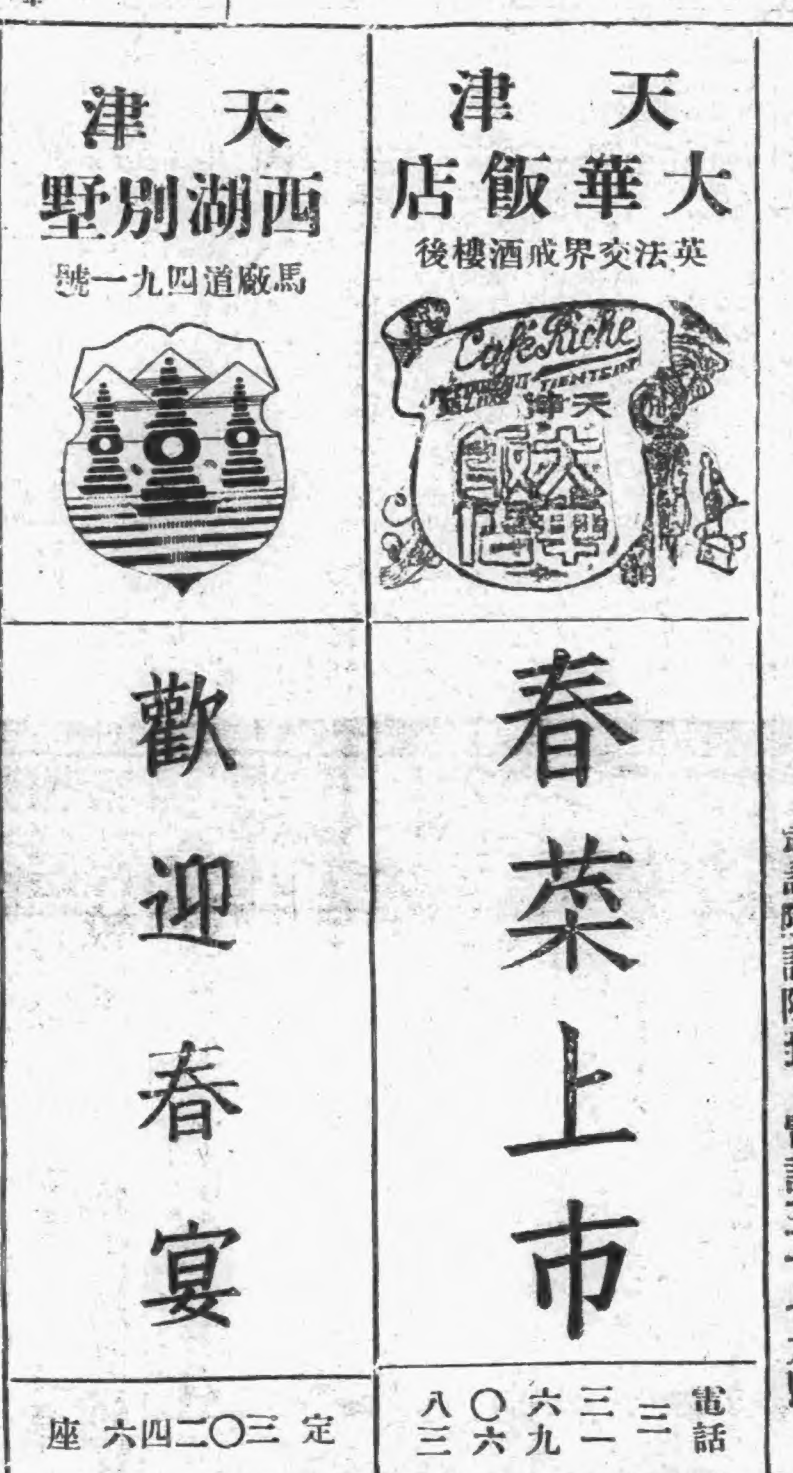 天津
大華飯店
英法交界戒酒樓後
Café Riche
TIENTSIN
天津
大華
飯店
春菜上市
電話
三
三六〇八
一九六三
天津
西湖別墅
馬廠道四九一號
歡迎春宴
定三〇二四六座